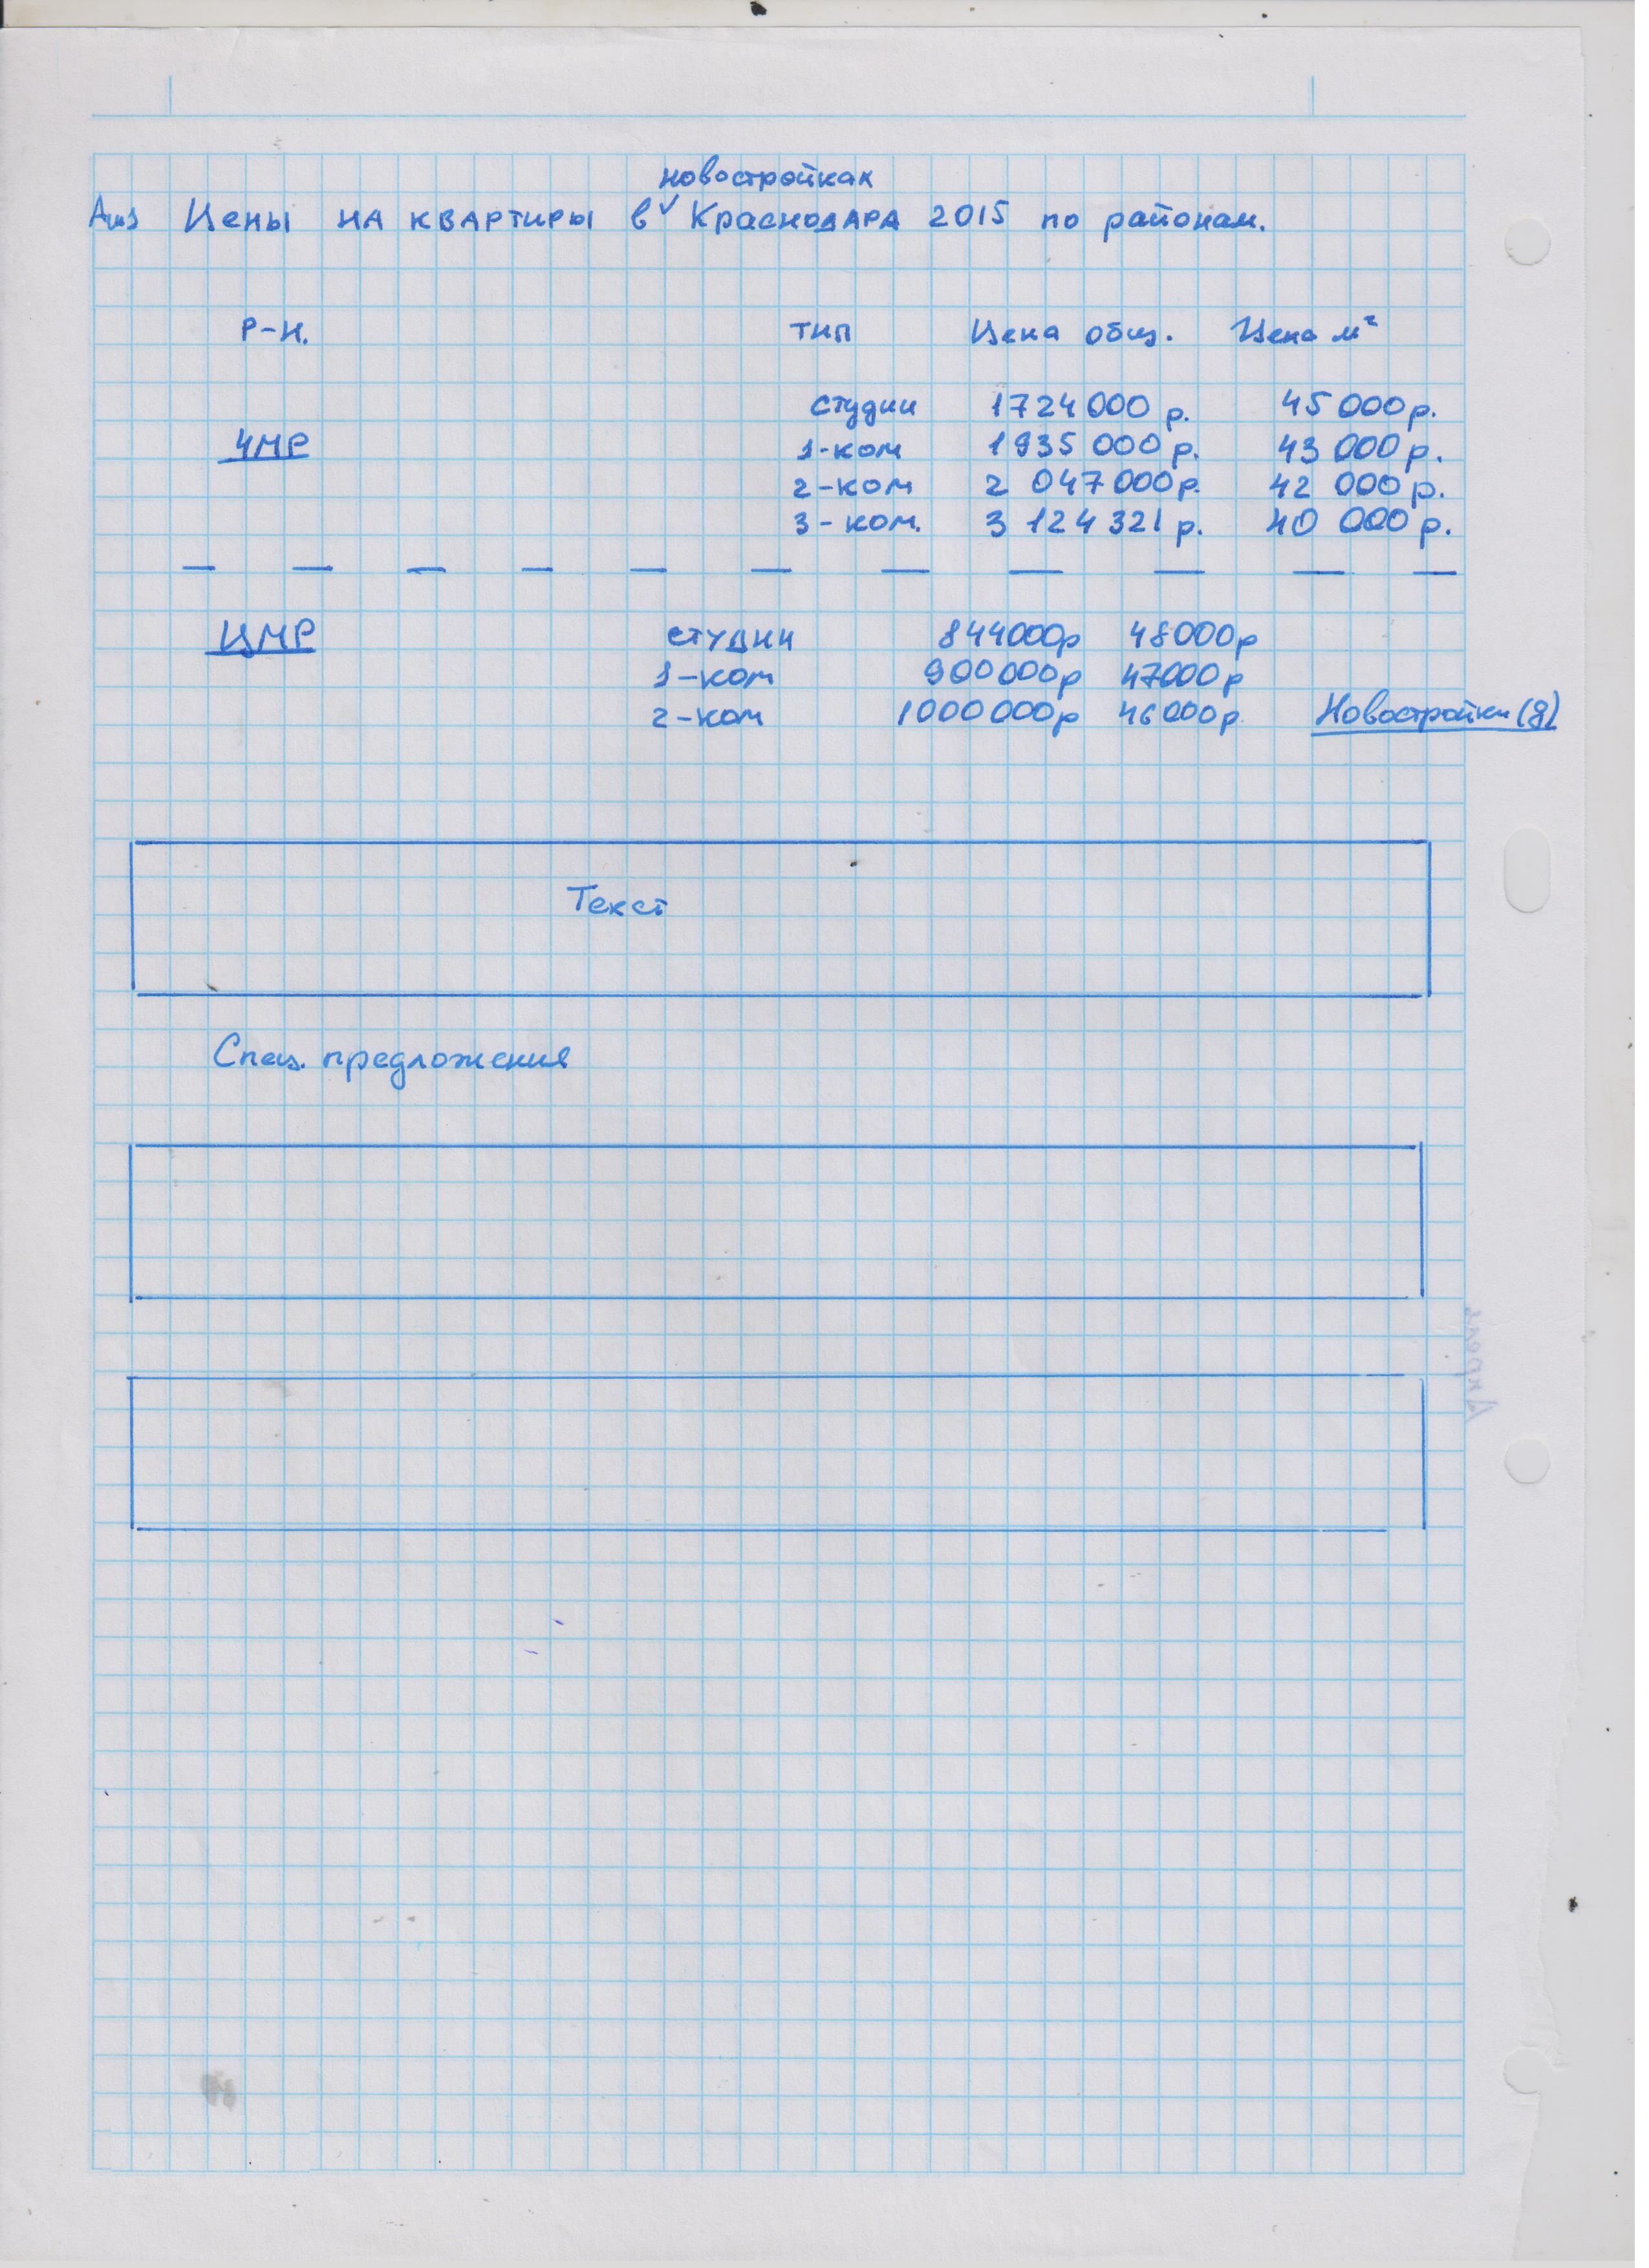 новостройках
Цены на квартиры в Краснодара 2015 по районам.
Р-н. тип Цена общ. Цена м²
студии 1724000 р. 45 000 р.
ЧМР 1-ком 1935 000 р. 43 000 р.
2-ком 2 047 000 р. 42 000 р.
3-ком. 3 124 321 р. 40 000 р.
ЦМР студии 844000р 48000р
1-ком 900000р 47000р
2-ком 1000000р 46000р Новостройки (8)
Текст
Спец. предложения